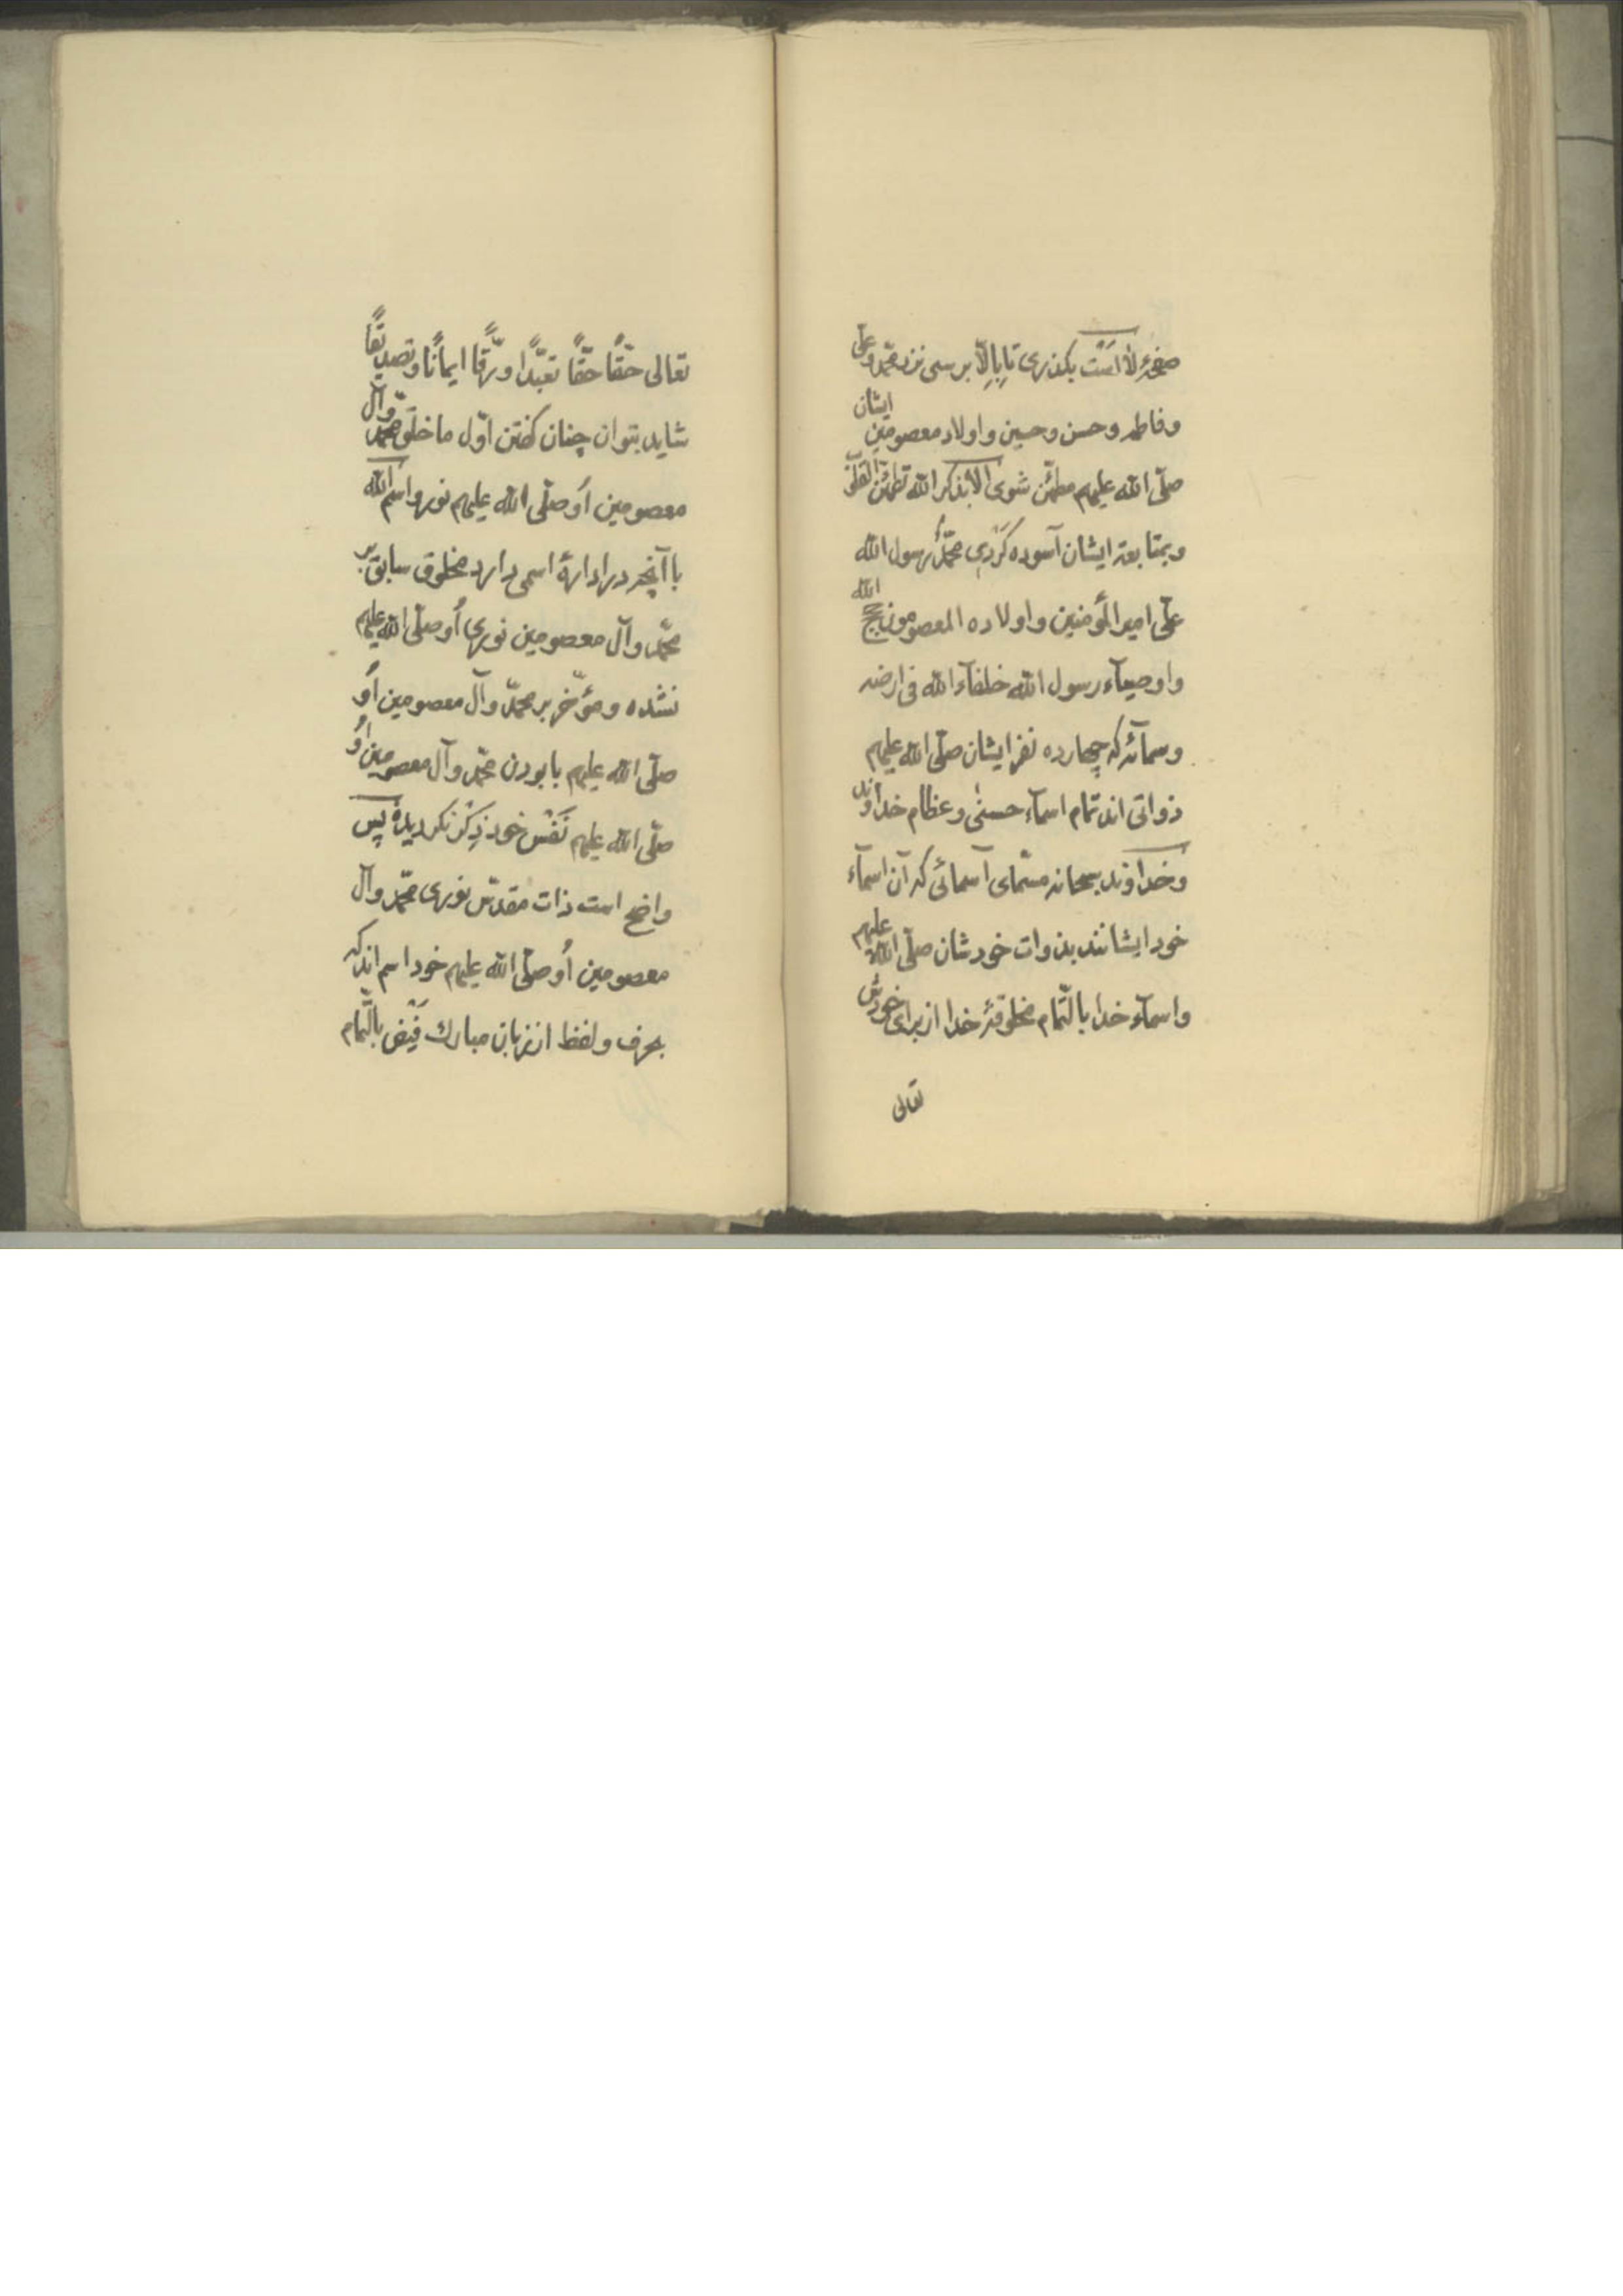 صفحهٔ لا است بگذری تا بالّا برسی نزد محمّد و علی
و فاطمه و حسن و حسین و اولاد معصومین ایشان
صلّی الله علیهم مطمئن شوی الا بذکر الله تطمئن القلوب
و بمتابعة ایشان آسوده گردی محمّدٌ رسول الله
علی امیر المؤمنین و اولاده المعصومون حجج الله
و اوصیآء رسول الله خلفآء الله فی ارضه
و سمآئه که چهارده نفر ایشان صلّی الله علیهم
ذواتی اند تمام اسمآء حسنی و عظام خداوند
و خداوند سبحانه مسمّای آسمائی که آن اسمآء
خود ایشانند بذوات خودشان صلّی الله علیهم
و اسمآء خدا بالتّمام مخلوقهٔ خدا از برای خودش
تعالی
تعالی حقّاً حقّاً تعبّداً و رقّاً ایماناً و تصدیقاً
شاید بتوان چنان گفتن اوّل ما خلق محمّد و آل
معصومین اُو صلّی الله علیهم نور و اسم الله
با آنچه در ادارهٔ اسمی دارد مخلوق سابق بر
محمّد و آل معصومین نوری اُو صلّی الله علیهم
نشده و مؤخّر بر محمّد و آل معصومین اُو
صلّی الله علیهم با بودن محمّد و آل معصومین اُو
صلّی الله علیهم نَفْس خود ذِکْر نکردیده پس
واضح است ذات مقدّس نوری محمّد و آل
معصومین اُو صلّی الله علیهم خود اسم اند که
بحرف و لفظ از زبان مبارک فَیْض بالتّمام